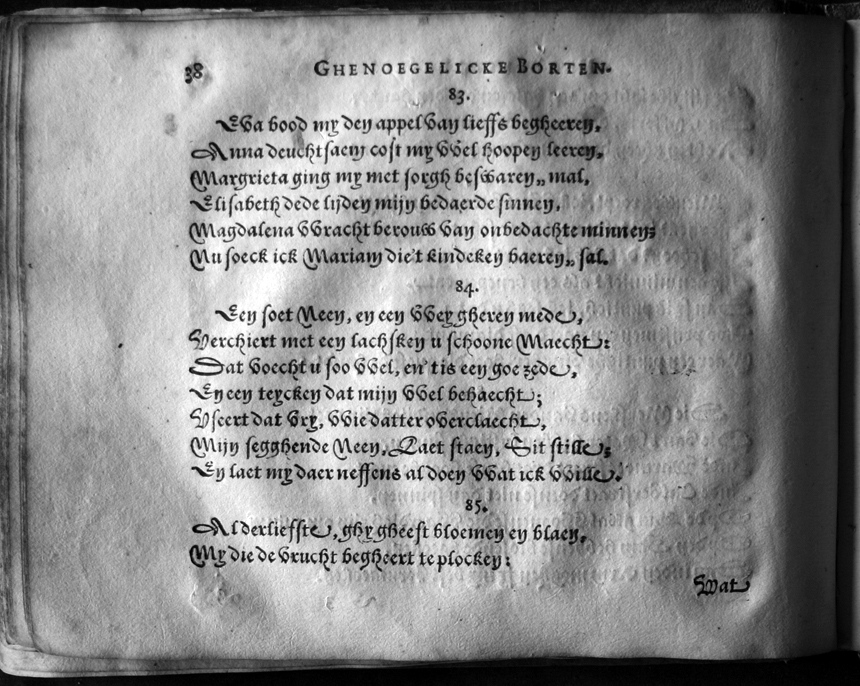 38 GHENOEGELICKE BORTEN.
83.
Eva bood my den appel van lieffs begheeren,
Anna deuchtsaem cost my wel hoopen leeren,
Margrieta ging my met sorgh beswaren„ mal,
Elisabeth dede lijden mijn bedaerde sinnen,
Magdalena wracht berouw van onbedachte minnen;
Nu soeck ick Mariam die't kindeken baeren„ sal.
84.
Een soet Neen, en een wey gheren mede,
Verchiert met een lachsken u schoone Maecht:
Dat voecht u soo wel, en' tis een goe zede,
En een teycken dat mijn wel behaecht;
Vseert dat vry, wie datter overclaecht,
Mijn segghende Neen, Laet staen, Sit stille;
En laet my daer neffens al doen wat ick wille.
85.
Alderliefste, ghy gheeft bloemen en blaen,
My die de vrucht begheert te plocken:
Wat